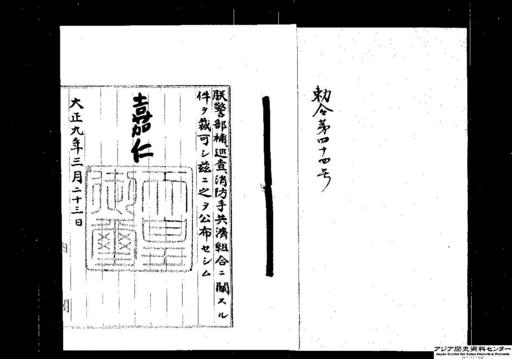 勅令第四十四号
朕警部補巡査消防手共済組合ニ関スル
件ヲ裁可シ茲ニ之ヲ公布セシム
嘉仁
天皇御璽
大正九年三月二十三日
アジア歴史資料センター
Japan Center for Asian Historical Records